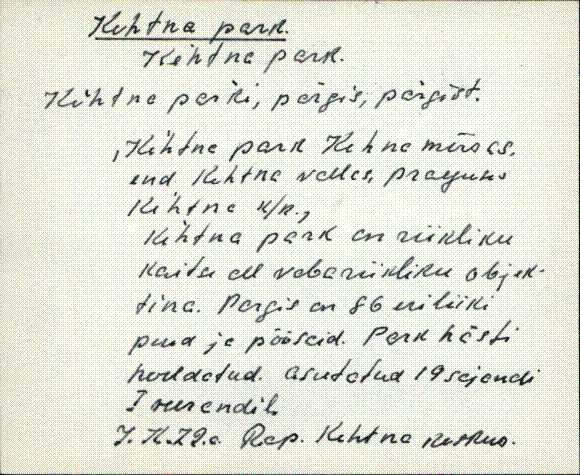 Kehtna park.
Kehtna park.
Kehtna parki, pargis, pargist.
, Kehtna park Kehna mõisas,
end. Kehtna vallas, praegune
Kehtna k/n.,
Kehtna park on riikliku
kaitse all vabariikliku objek-
tina. Pargis on 86 eriliiki
puud ja põõsaid. Park hästi
hooldatud. asutatud 19 sajandi
I veerandil.
J. K. 79.a Rap. Kehtna keskus.